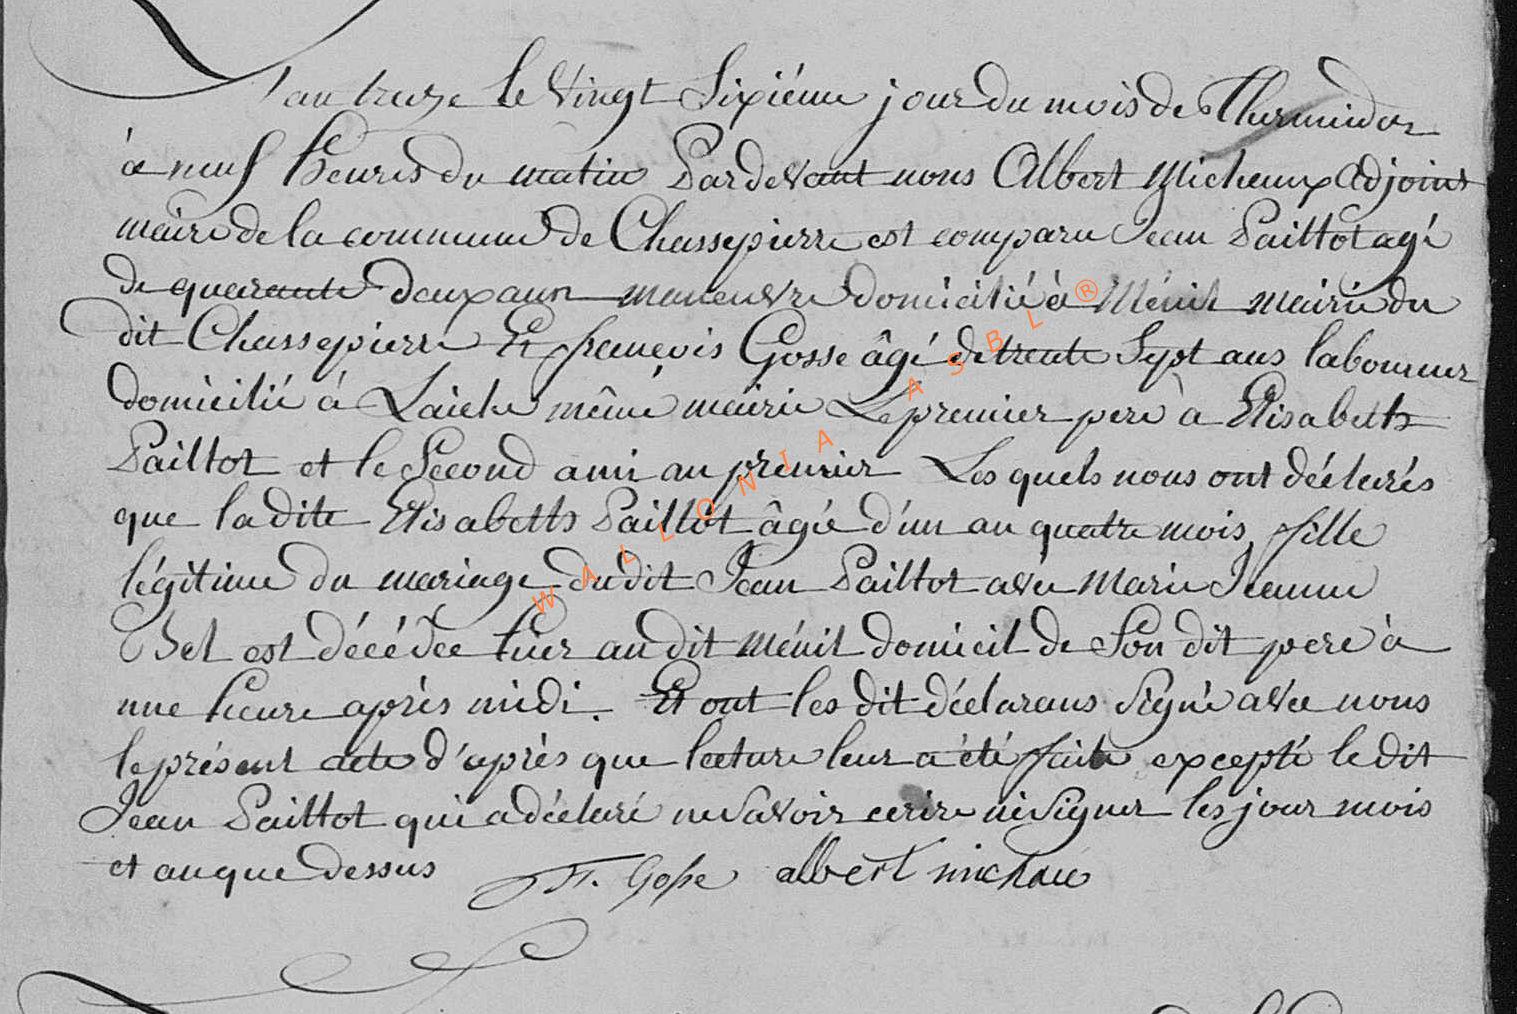 L'an treize le Vingt Sixiéme jour du mois de Thermidor
à neuf heures du matin Pardevant nous Albert Michaux Adjoint
maire de la commune de Chassepierre est comparu Jean Paillot agé
de quarante deux ans maneuvre domicilié à Ménil mairie du
dit Chassepierre Et francois Gosse âgé de trente Sept ans laboureur
domicilié à Laiche même mairie Le premier pere à Elisabeth
Paillot et le Second ami au premier Les quels nous ont déclarés
que la dite Elisabeth Paillot âgée d'un an quatre mois, fille
légitime du mariage dudit Jean Paillot avec Marie Jeanne
est décédée hier au dit Ménil domicil de Son dit pere à
une heure après midi. Et ont les dit déclarans Signé avec nous
le présent acte d'après que lecture leur a été faite excepté le dit
Jean Paillot qui a déclaré ne Savoir ecrire ni Signer les jour mois
et an que dessus F. Gosse albert michaux
WALLONIA ASBL®